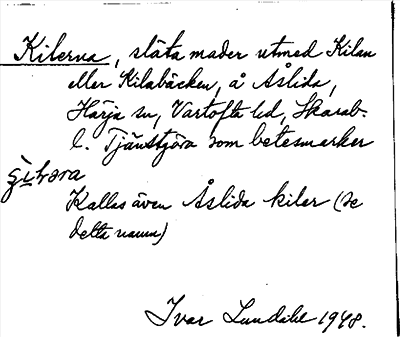 Kilerna, släta mader utmed Kilan
eller Kilabäcken, å Åslida,
Härja sn, Vartofta hd, Skarab.
l. Tjänstgöra som betesmarker
Kallas även Åslida kiler (se
detta namn)
Ivar Lundahl 1948.